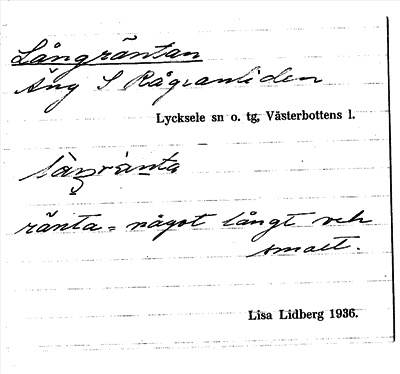 Långräntan
Äng S Rågranliden
Lycksele sn o. tg, Västerbottens l.
ränta = något långt och
smalt.
Lisa Lidberg 1936.